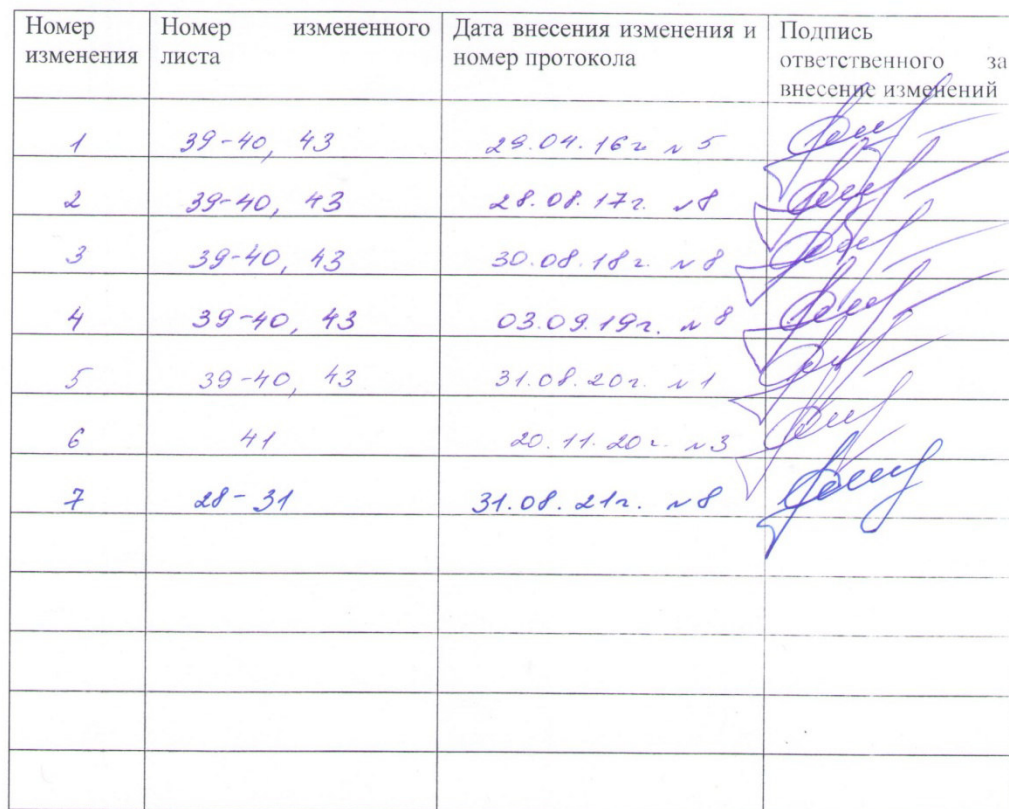 Номер изменения
Номер измененного листа
Дата внесения изменения и номер протокола
Подпись ответственного за внесение изменений
1 39-40, 43 29.04.16г №5
2 39-40, 43 28.08.17г. №8
3 39-40, 43 30.08.18г. №8
4 39-40, 43 03.09.19г. №8
5 39-40, 43 31.08.20г. №1
6 41 20.11.20г. №3
7 28-31 31.08.21г. №8